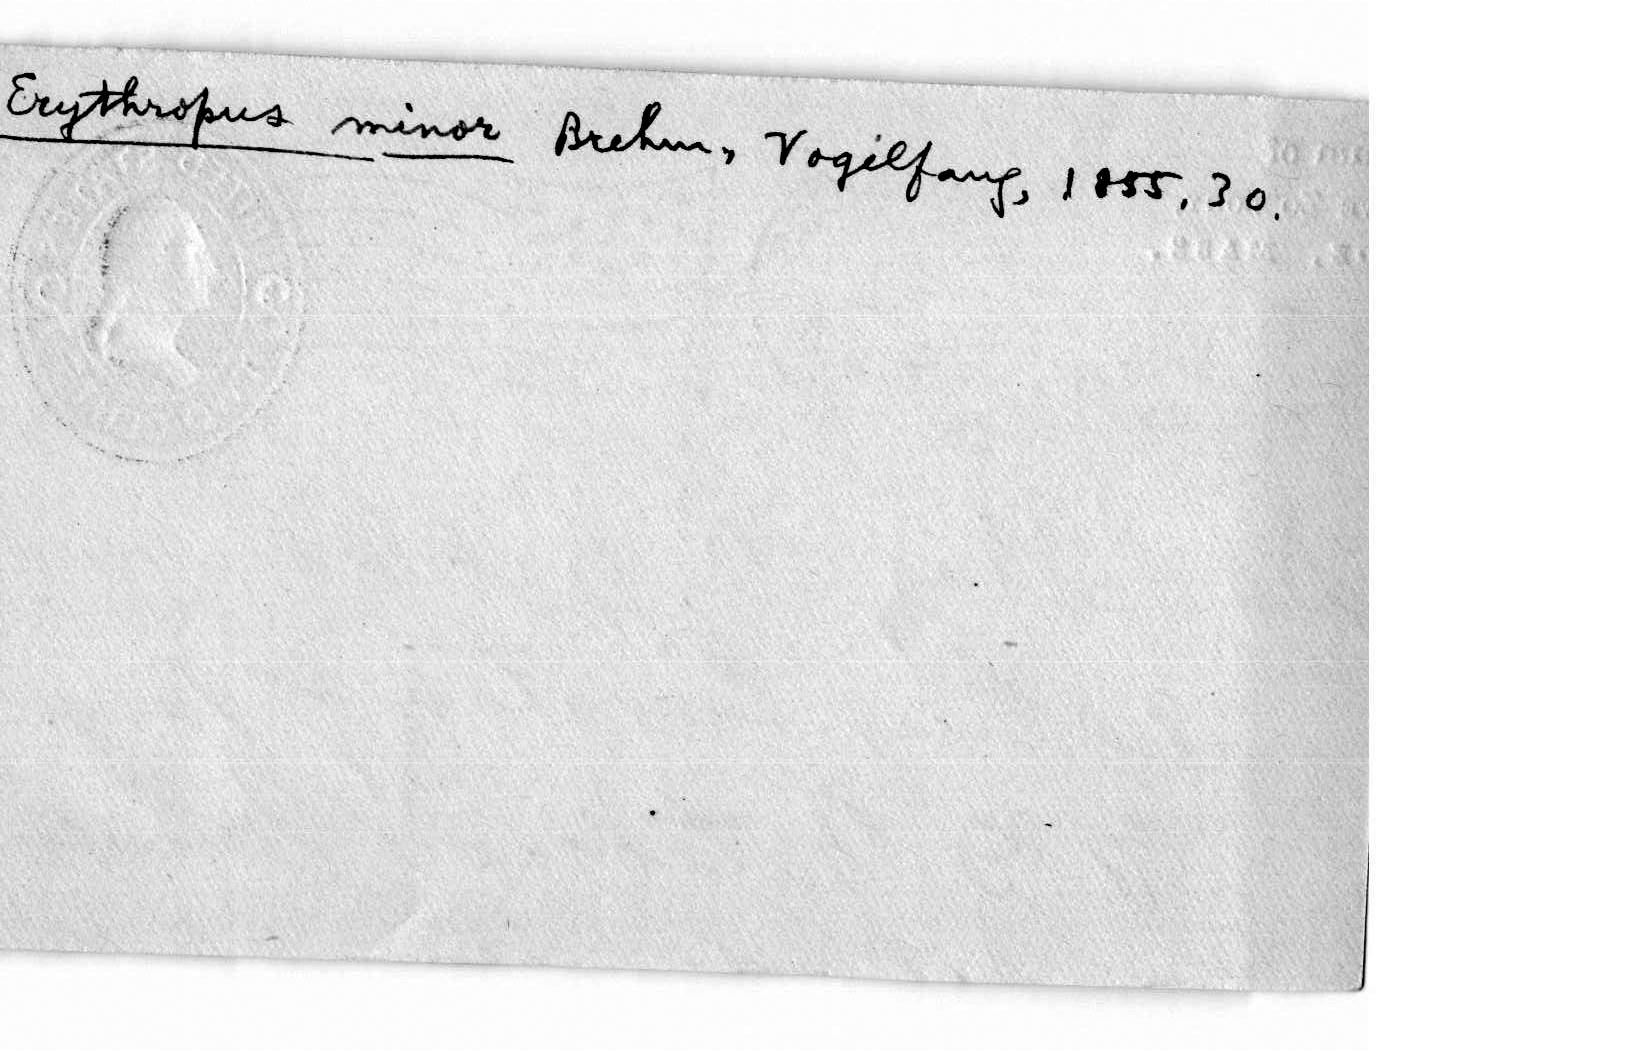 Erythropus minor Brehm, Vogelfang, 1855, 30.